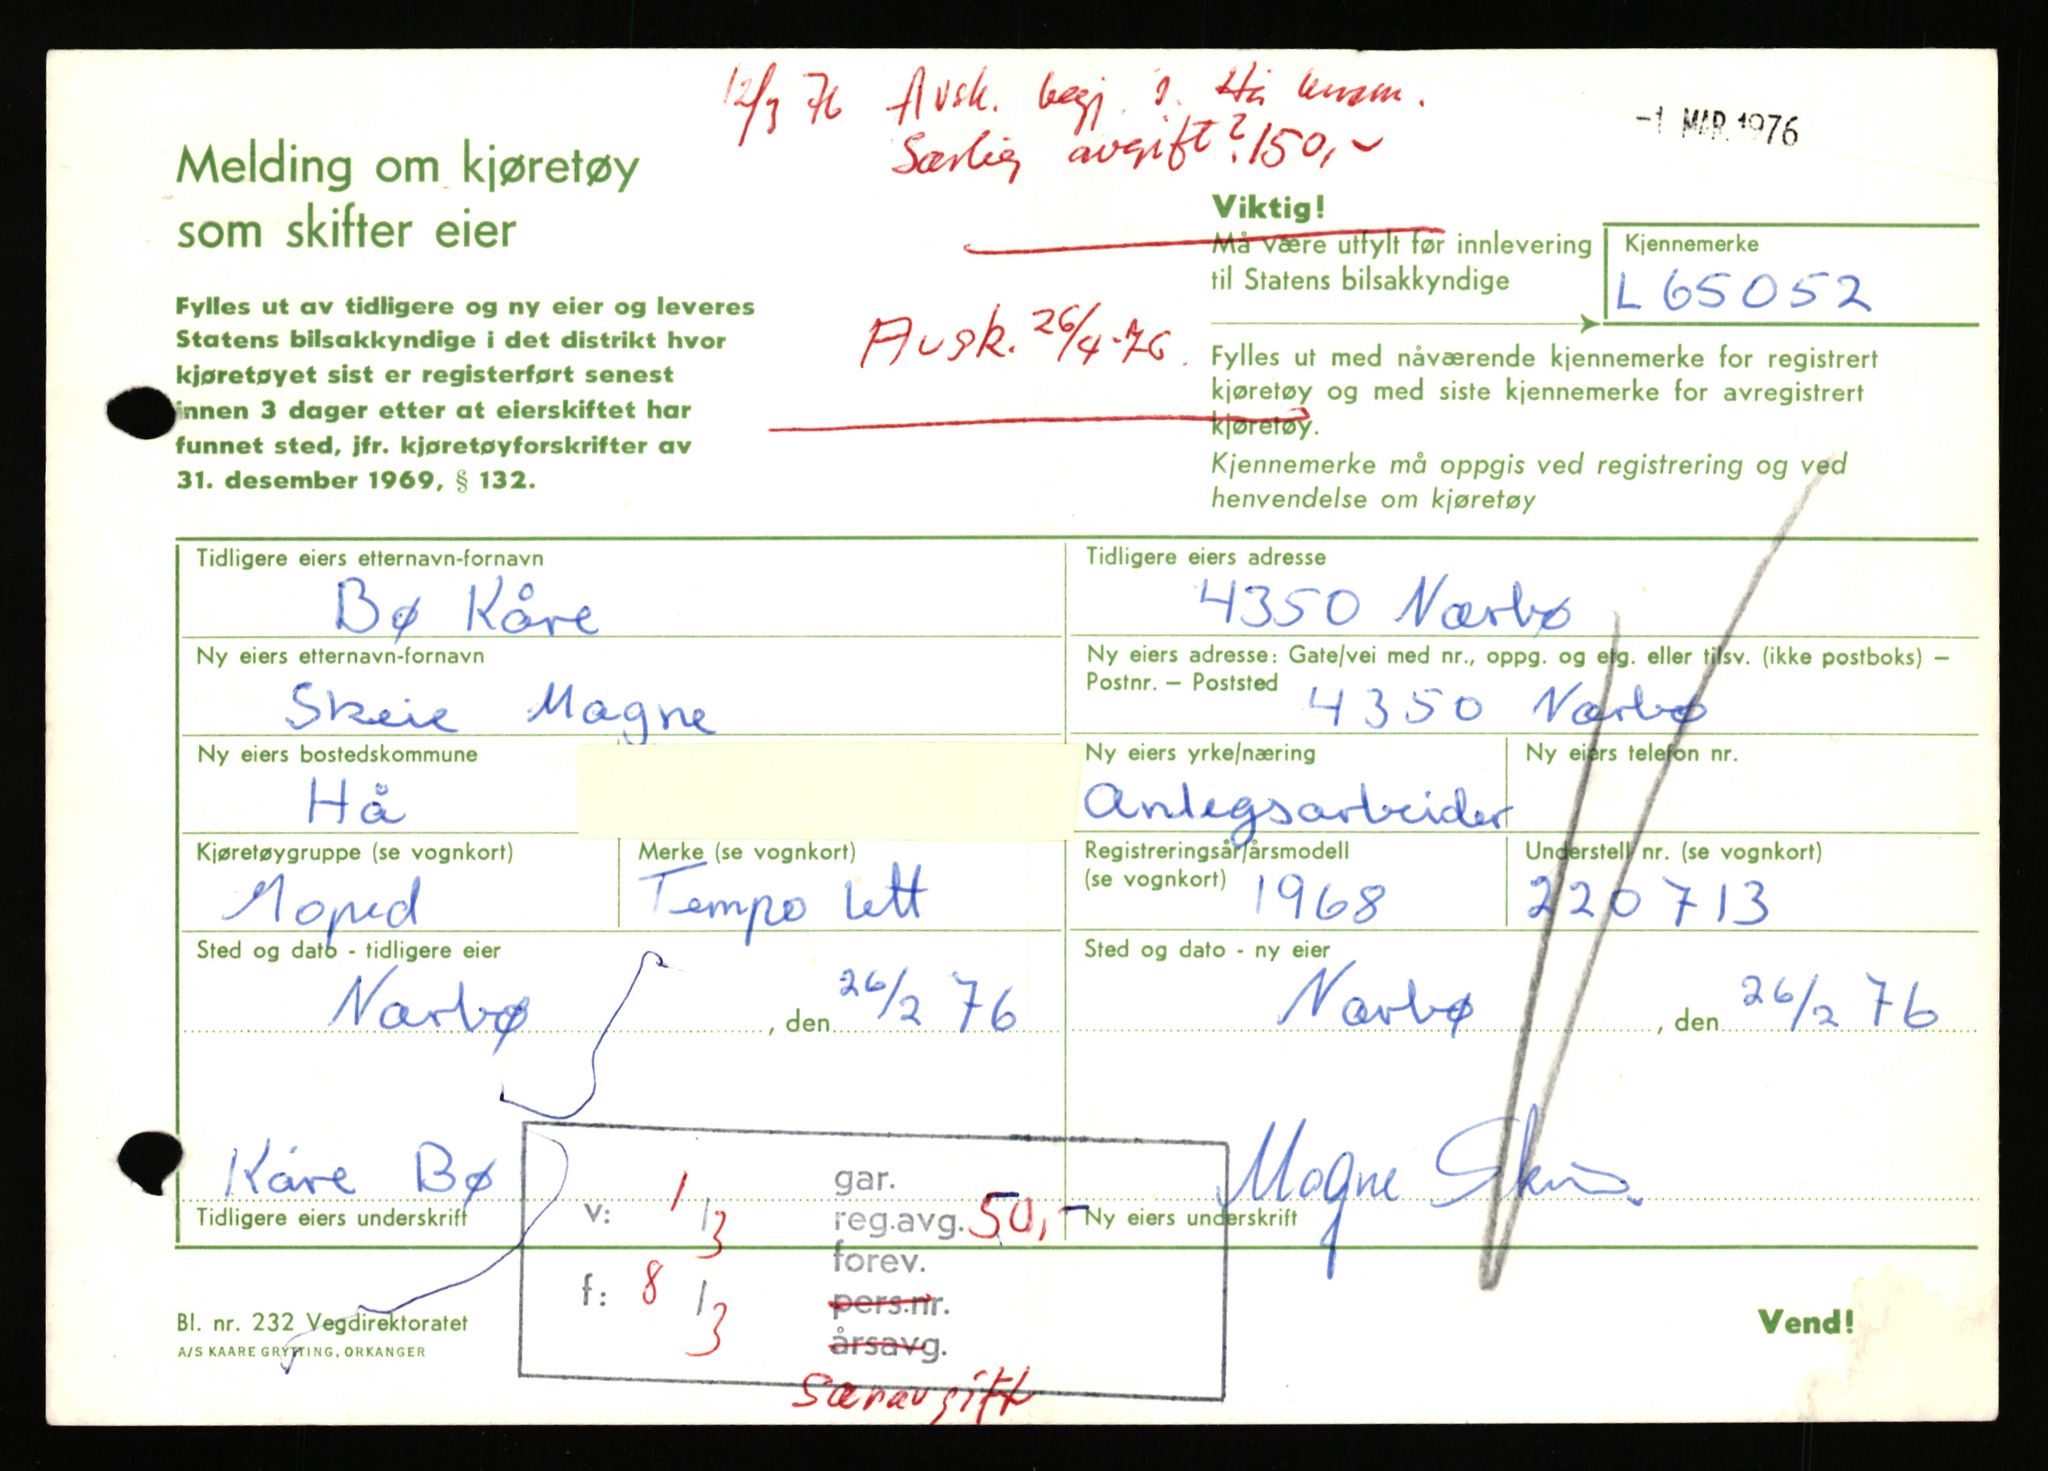 12/3 76 Avsk. begj. i. Hå lensm.
Særlig avgift? 150,-
-1 MAR. 1976
Melding om kjøretøy
som skifter eier
Fylles ut av tidligere og ny eier og leveres
Statens bilsakkyndige i det distrikt hvor
kjøretøyet sist er registerført senest
innen 3 dager etter at eierskiftet har
funnet sted, jfr. kjøretøyforskrifter av
31. desember 1969, § 132.
Avsk. 26/4-76.
Viktig!
Må være utfylt før innlevering
til Statens bilsakkyndige
Kjennemerke
L 65052
Fylles ut med nåværende kjennemerke for registrert
kjøretøy og med siste kjennemerke for avregistrert
kjøretøy.
Kjennemerke må oppgis ved registrering og ved
henvendelse om kjøretøy
Tidligere eiers etternavn-fornavn
Bø Kåre
Tidligere eiers adresse
4350 Nærbø
Ny eiers etternavn-fornavn
Skeie Magne
Ny eiers adresse: Gate/vei med nr., oppg. og etg. eller tilsv. (ikke postboks) –
Postnr. – Poststed 4350 Nærbø
Ny eiers bostedskommune
Hå
Ny eiers yrke/næring
Anlegsarbeider
Ny eiers telefon nr.
Kjøretøygruppe (se vognkort)
Moped
Merke (se vognkort)
Tempo lett
Registreringsår/årsmodell
(se vognkort) 1968
Understell nr. (se vognkort)
220713
Sted og dato - tidligere eier
Nærbø, den 26/2 76
Sted og dato - ny eier
Nærbø, den 26/2 76
Kåre Bø
Tidligere eiers underskrift
Magne Skeie
Ny eiers underskrift
v: 1/3
f: 8/3
gar.
reg.avg. 50,-
forev.
pers.nr.
årsavg.
Særavgift
Bl. nr. 232 Vegdirektoratet
A/S KAARE GRYTTING, ORKANGER
Vend!